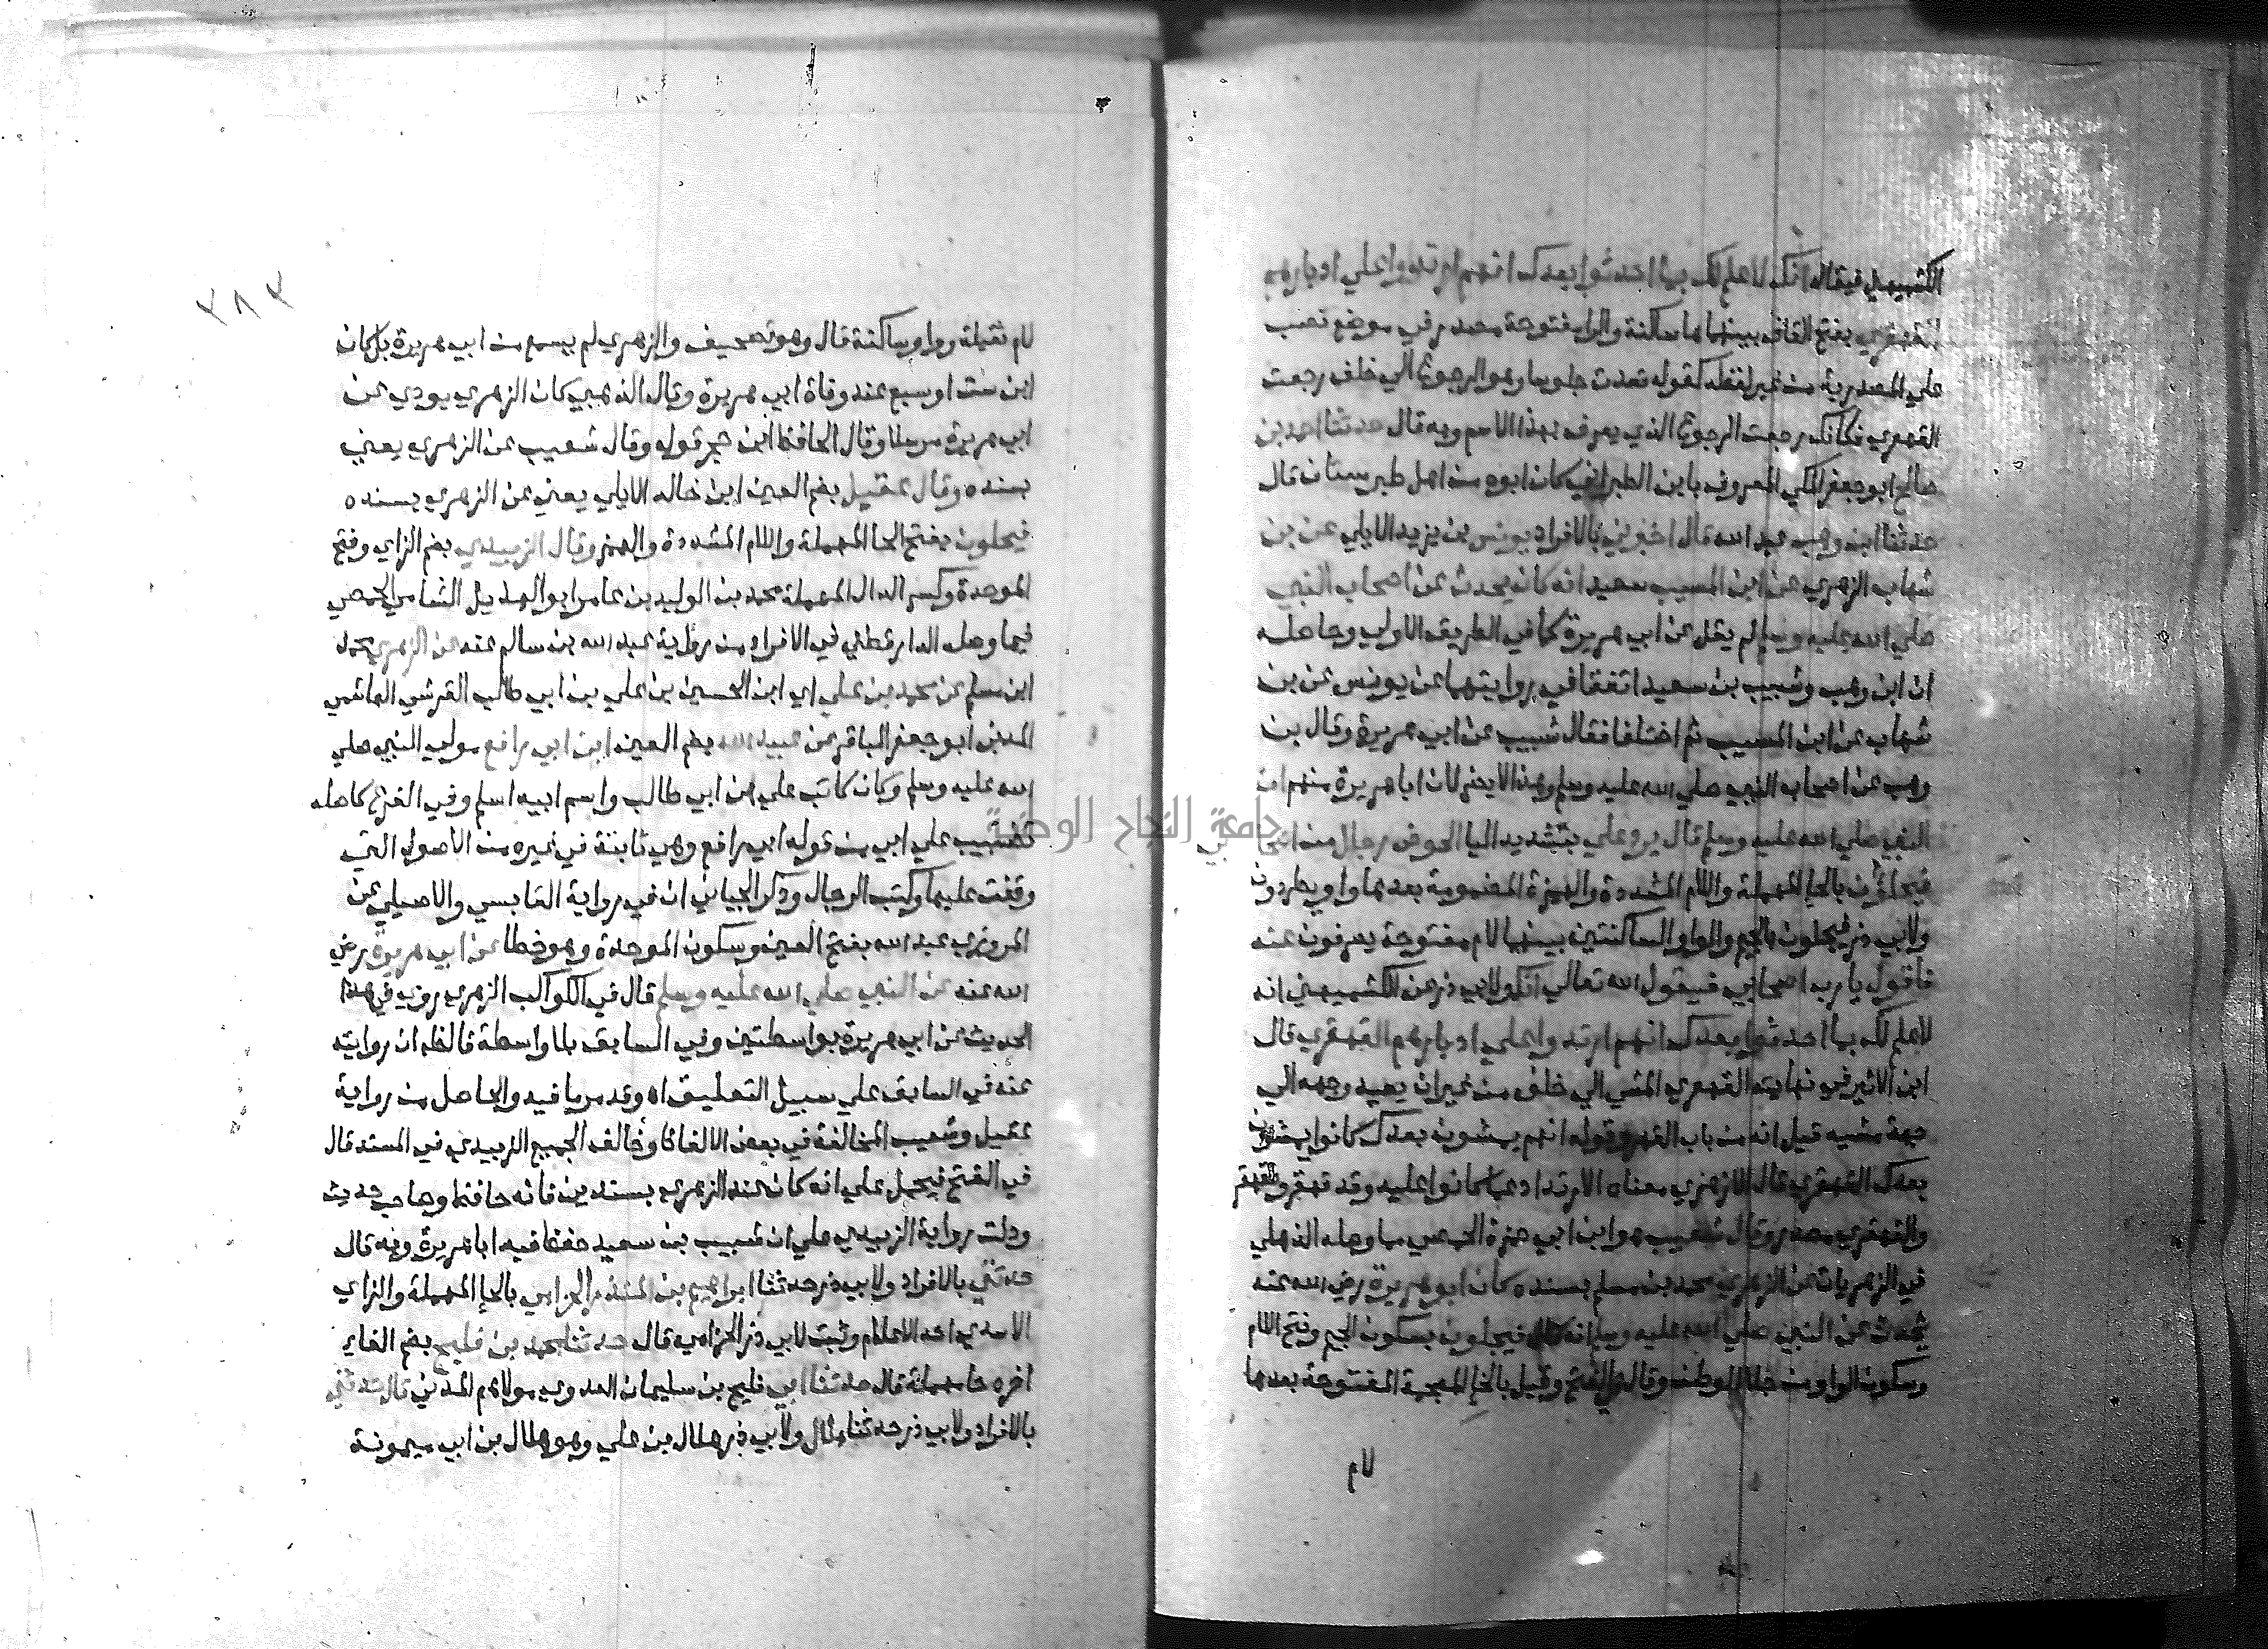 الكشميهني فيقال انك لا علم لك بما احدثوا بعدك انهم ارتدوا علي ادبارهم
القهقري بفتح القافين بينهما ها ساكنة والراء مفتوحة مصدر في موضع نصب
علي المصدرية من غير لفظه كقوله قعدت جلوسا وهو الرجوع الي خلف رجعت
القهقري فكانك رجعت الرجوع الذي يعرف بهذا الاسم وبه قال حدثنا احمد بن
صالح ابو جعفر المكي المعروف بابن الطبراني كان ابوه من اهل طبرستان قال
حدثنا ابن وهب عبد الله قال اخبرني بالافراد يونس بن يزيد الايلي عن بن
شهاب الزهري عن ابن المسيب سعيد انه كان يحدث عن اصحاب النبي
صلي الله عليه وسلم لم يقل عن ابي هريرة كما في الطريق الاولي وحاصله
ان ابن وهب وشبيب بن سعيد اتفقا في روايتهما عن يونس عن بن
شهاب عن ابن المسيب ثم اختلفا فقال شبيب عن ابي هريرة وقال بن
وهب عن اصحاب النبي صلي الله عليه وسلم وهذا لا يضر لان ابا هريرة منهم ان
النبي صلي الله عليه وسلم قال يرد علي بتشديد اليا الحوض رجال من اصحابي
فيحلؤن بالحا المهملة واللام المشددة والهمزة المضمومة بعدها واو يطردون
ولابي ذر فيجلون بالجيم والواو الساكنتين بينهما لام مفتوحة يصرفون عنه
فاقول يارب اصحابي فيقول الله تعالي انك ولابي ذر عن الكشميهني انه
لا علم لك بما احدثوا بعدك انهم ارتدوا علي ادبارهم القهقري قال
ابن الاثير في نهايته القهقري المشي الي خلف من غير ان يعيد وجهه الي
جهة مشيه قيل انه من باب القهر وقوله انهم يمشون بعدك كانوا يمشون
بعدك القهقري قال الازهري معناه الارتداد عما كانوا عليه وقد قهقر وتقهقر
والقهقري مصدر وقال شعيب هو ابن ابي حمزة الحمصي مما وصله الذهلي
في الزهريات عن الزهري محمد بن مسلم بسنده كان ابو هريرة رضي الله عنه
يحدث عن النبي صلي الله عليه وسلم انه قال فيجلون بسكون الجيم وفتح اللام
وسكون الواو من جلا الوطن وقال في الفتح وقيل بالخا المعجمة المفتوحة بعدها
لام
٣٨٣
لام ثقيلة وواو ساكنة قال وهو تصحيف والزهري لم يسمع من ابي هريرة بل كان
ابن ست او سبع عند وفاة ابي هريرة وقال الذهبي كان الزهري يودي عن
ابي هريرة مرسلا وقال الحافظ ابن حجر قوله وقال شعيب عن الزهري يعني
بسنده وقال عقيل بضم العين ابن خالد الايلي يعني عن الزهري بسنده
فيحلون بفتح الحا المهملة واللام المشددة والهمز وقال الزبيدي بضم الزاي وفتح
الموحدة وكسر الدال المهملة محمد بن الوليد بن عامر ابو الهذيل الشامي الحمصي
فيما وصله الدارقطني في الافراد من رواية عبد الله بن سالم عنه عن الزهري محمد
ابن مسلم عن محمد بن علي اي ابن الحسين بن علي بن ابي طالب القرشي الهاشمي
المدني ابو جعفر الباقر عن عبيد الله بضم العين ابن ابي رافع مولي النبي صلي
الله عليه وسلم وكان كاتب علي بن ابي طالب واسم ابيه اسلم وفي الفرع كاصله
تضبيب علي ابي من قوله ابي رافع وهي ثابتة في غيره من الاصول التي
وقفت عليها وكتب الرجال وذكر الجياني ان في رواية القابسي والاصيلي عن
المروزي عبد الله بفتح العين وسكون الموحدة وهو خطا عن ابي هريرة رضي
الله عنه عن النبي صلي الله عليه وسلم قال في الكواكب الزهري روي في هذا
الحديث عن ابي هريرة بواسطتين وفي السابق بلا واسطة فالظاهر ان روايته
عنه في السابق علي سبيل التعليق اه وقد مر ما فيه والحاصل من رواية
عقيل وشعيب المخالفة في بعض الالفاظ وخالف الجميع الزبيدي في المسند قال
في الفتح فيحمل علي انه كان عند الزهري بسندين فانه حافظ وصاحب حديث
ودلت رواية الزبيدي علي ان شبيب بن سعيد حفظ فيه ابا هريرة وبه قال
حدثني بالافراد ولابي ذر حدثنا ابراهيم بن المنذر الحزامي بالحا المهملة والزاي
الاسدي احد الاعلام وثبت لابي ذر الحزامي قال حدثنا محمد بن فليح بضم الفاء
اخره حا مهملة قال حدثنا ابي فليح بن سليمان العدوي مولاهم المدني قال حدثني
بالافراد ولابي ذر حدثنا هلال ولابي ذر هلال بن علي وهو هلال بن ابي ميمونة
جامعة النجاح الوطنية